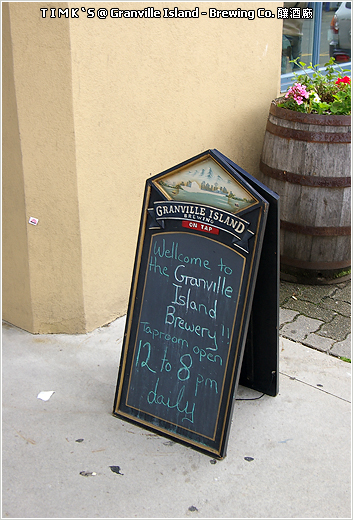 TIMK`S @ Granville Island - Brewing Co. 釀酒廠
GRANVILLE ISLAND
BREWING
ON TAP
Wellcome to
the Granville
Island
Brewery!!
Taproom open
12 to 8 pm
daily